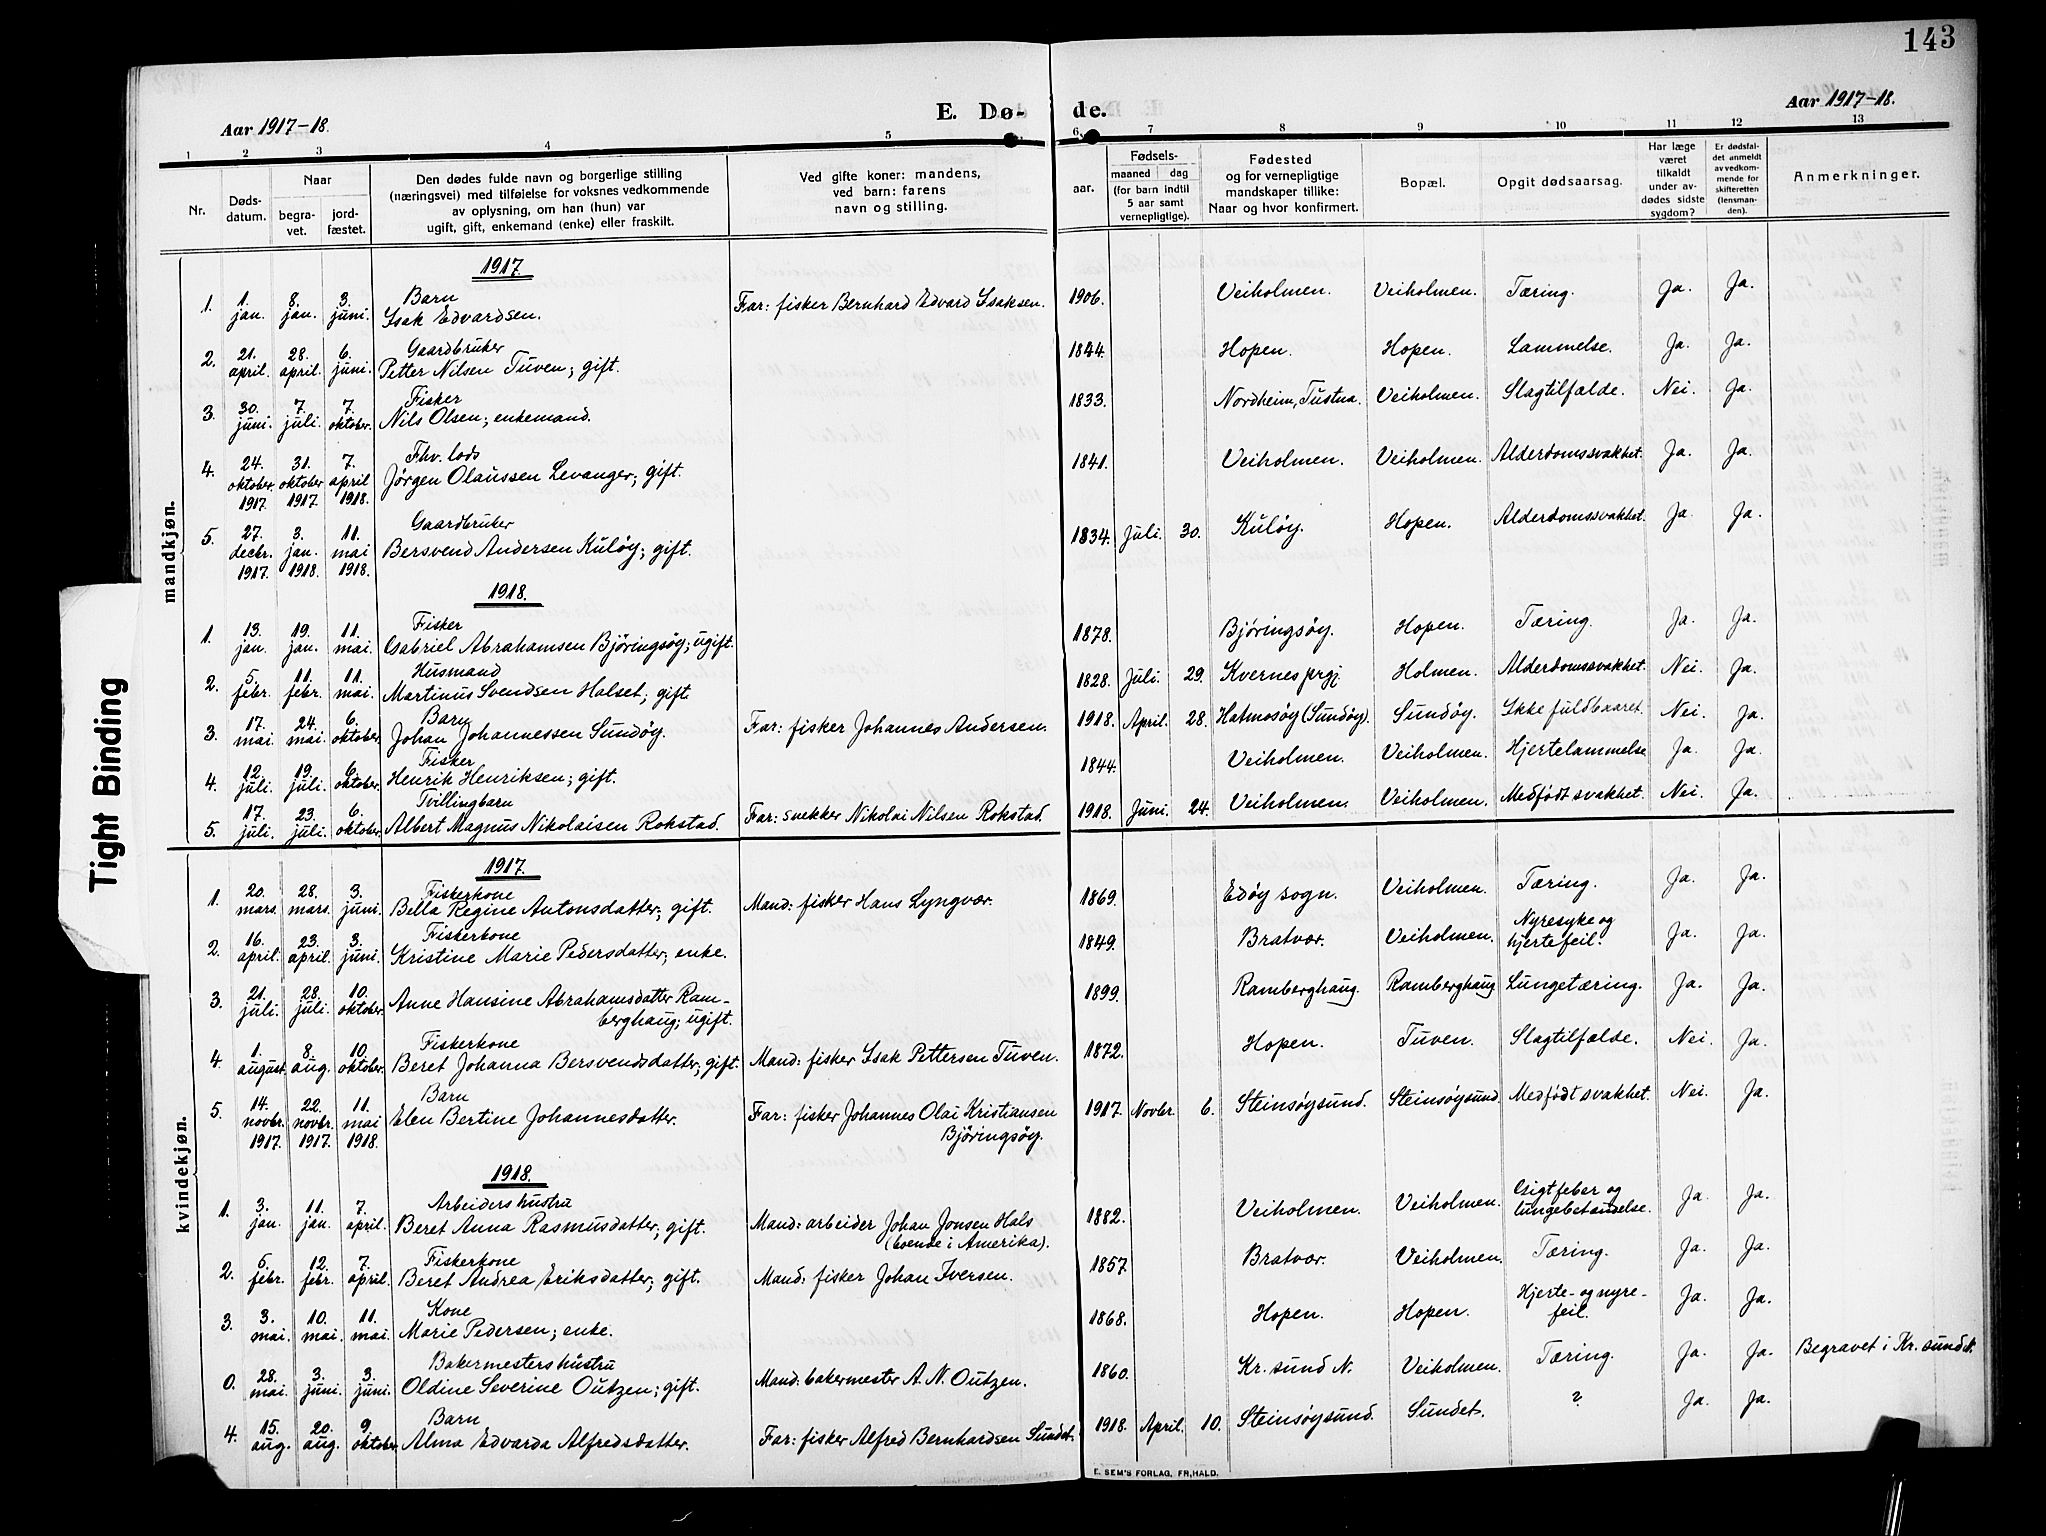 143
Aar 1917-18.
E. Dø- de.
Aar 1917-18.
1 2 3 4 5 6 7 8 9 10 11 12 13
Nr.
Døds-
datum.
Naar
begra-
vet.
jord-
fæstet.
Den dødes fulde navn og borgerlige stilling
(næringsvei) med tilføielse for voksnes vedkommende
av oplysning, om han (hun) var
ugift, gift, enkemand (enke) eller fraskilt.
Ved gifte koner: mandens,
ved barn: farens
navn og stilling.
aar.
Fødsels-
maaned dag
(for barn indtil
5 aar samt
vernepligtige).
Fødested
og for vernepligtige
mandskaper tillike:
Naar og hvor konfirmert.
Bopæl.
Opgit dødsaarsag.
Har læge
været
tilkaldt
under av-
dødes sidste
sygdom?
Er dødsfal-
det anmeldt
av vedkom-
mende for
skifteretten
(lensman-
den).
Anmerkninger.
Tight Binding
mandkjøn.
1917.
1. 1. jan. 8. jan. 3. juni. Barn
Isak Edvardsen. Far: fisker Bernhard Edvard Isaksen. 1906. Veiholmen. Veiholmen. Tæring. Ja. Ja.
2. 21. april. 28. april. 6. juni. Gaardbruker
Petter Nilsen Tuven; gift. 1844. Hopen. Hopen. Lammelse. Ja. Ja.
3. 30. juni. 7. juli. 7. oktober. Fisker
Nils Olsen; enkemand. 1833. Nordheim, Tustna. Veiholmen. Slagtilfælde. Nei. Ja.
4. 24. oktober. 1917. 31. oktober 1917. 7. april 1918. Fhv. lods
Jørgen Olaussen Levanger; gift. 1841. Veiholmen. Veiholmen. Alderdomssvakhet. Ja. Ja.
5. 27. decbr. 1917. 3. jan. 1918. 11. mai 1918. Gaardbruker
Bersvend Andersen Kuløy; gift. 1834. Juli. 30. Kuløy. Hopen. Alderdomssvakhet. Ja. Ja.
1918.
1. 13. jan. 19. jan. 11. mai. Fisker
Gabriel Abrahamsen Bjøringsøy; ugift. 1878. Bjøringsøy. Hopen. Tæring. Ja. Ja.
2. 5. febr. 11. febr. 11. mai. Husmand
Martinus Svendsen Halset; gift. 1828. Juli. 29. Kvernes prgj. Holmen. Alderdomssvakhet. Nei. Ja.
3. 17. mai. 24. mai. 6. oktober. Barn
Johan Johannessen Sundøy. Far: fisker Johannes Andersen. 1918. April. 28. Hatmosøy (Sundøy). Sundøy. Ikke fuldbaaret. Nei. Ja.
4. 12. juli. 19. juli. 6. oktober. Fisker
Henrik Henriksen; gift. 1844. Veiholmen. Veiholmen. Hjertelammelse. Ja. Ja.
5. 17. juli. 23. juli. 6. oktober. Tvillingbarn
Albert Magnus Nikolaisen Rokstad. Far: snekker Nikolai Nilsen Rokstad. 1918. Juni. 24. Veiholmen. Veiholmen. Medfødt svakhet. Nei. Ja.
kvindekjøn.
1917.
1. 20. mars. 28. mars. 3. juni. Fiskerkone
Bella Regine Antonsdatter; gift. Mand: fisker Hans Lyngvær. 1869. Edøy sogn. Veiholmen. Tæring. Ja. Ja.
2. 16. april. 23. april. 3. juni. Fiskerkone
Kristine Marie Pedersdatter; enke. 1849. Bratvær. Veiholmen. Nyresyke og hjertefeil. Ja. Ja.
3. 21. juli. 28. juli. 10. oktober. Anne Hansine Abrahamsdatter Ram-
berghaug; ugift. 1899. Ramberghaug. Ramberghaug. Lungetæring. Ja. Ja.
4. 1. august. 8. aug. 10. oktober. Fiskerkone
Beret Johanna Bersvendsdatter; gift. Mand: fisker Isak Pettersen Tuven. 1872. Hopen. Tuven. Slagtilfælde. Nei. Ja.
5. 14. novbr. 1917. 22. novbr. 1917. 11. mai 1918. Barn
Elen Bertine Johannesdatter. Far: fisker Johannes Olai Kristiansen
Bjøringsøy. 1917. Novbr. 6. Steinsøysund. Steinsøysund. Medfødt svakhet. Nei. Ja.
1918.
1. 3. jan. 11. jan. 7. april. Arbeiders hustru
Beret Anna Rasmusdatter; gift. Mand: arbeider Johan Jonsen Hals
(boende i Amerika). 1882. Veiholmen. Veiholmen. Gigtfeber og lungebetændelse. Ja. Ja.
2. 5. febr. 12. febr. 7. april. Fiskerkone
Beret Andrea Eriksdatter; gift. Mand: fisker Johan Iversen. 1857. Bratvær. Veiholmen. Tæring. Ja. Ja.
3. 3. mai. 10. mai. 11. mai. Kone
Marie Pedersen; enke. 1868. Hopen. Hopen. Hjerte- og nyre-
feil. Ja. Ja.
0. 28. mai. 3. juni. 3. juni. Bakermesters hustru
Oldine Severine Outzen; gift. Mand: bakermester A. N. Outzen. 1860. Kr. sund N. Veiholmen. Tæring. Ja. Ja. Begravet i Kr. sund N.
4. 15. aug. 20. aug. 9. oktober. Barn
Alma Edvarda Alfredsdatter. Far: fisker Alfred Bernhardsen Sundet. 1918. April. 10. Steinsøysund. Sundet. ? Ja. Ja.
E. SEM'S FORLAG, FR.HALD.